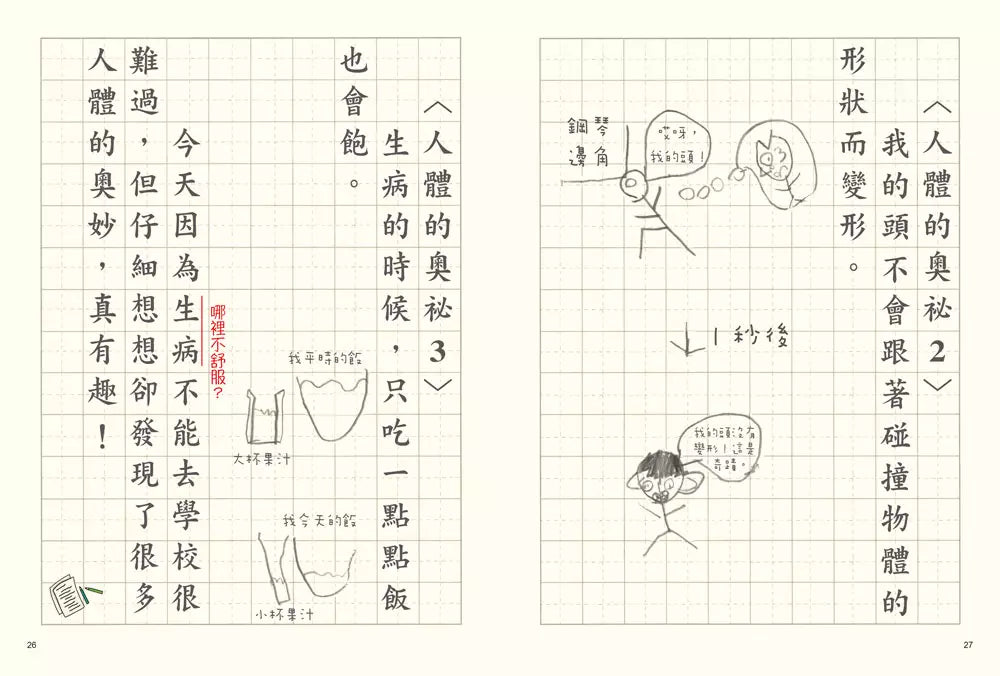 〈人體的奧祕2〉
我的頭不會跟著碰撞物體的
形狀而變形。
鋼琴
邊角
哎呀，
我的頭！
1秒後
我的頭沒有
變形！這是
奇蹟。
27
〈人體的奧祕3〉
生病的時候，只吃一點點飯
也會飽。
我平時的飯
大杯果汁
我今天的飯
小杯果汁
哪裡不舒服？
今天因為生病不能去學校很
難過，但仔細想想卻發現了很多
人體的奧妙，真有趣！
26